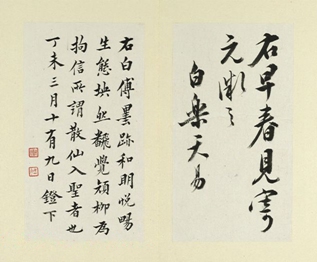 右早春見寄
元微之
白樂天易
右白傅墨跡和明悅暢
生態然飜覺顛柳爲
拘信所謂散仙入聖者也
丁未三月十有九日鐙下